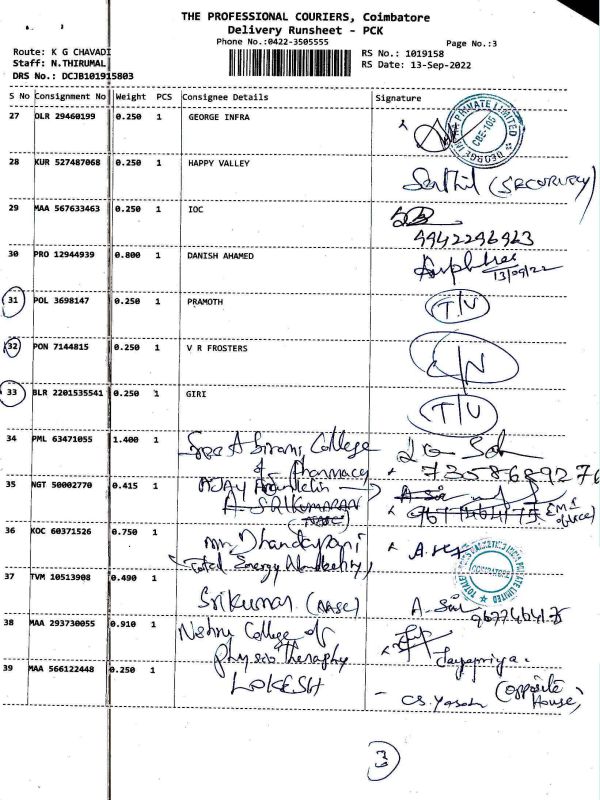 THE PROFESSIONAL COURIERS, Coimbatore
Delivery Runsheet - PCK
Phone No.:0422-3505555
Page No.:3
Route: K G CHAVADI
Staff: N.THIRUMAL
DRS No.: DCJB101915803
RS No.: 1019158
RS Date: 13-Sep-2022
S No Consignment No Weight PCS Consignee Details Signature
27 DLR 29460199 0.250 1 GEORGE INFRA
GEORGE INFRA PRIVATE LIMITED CBE-105
28 KUR 527487068 0.250 1 HAPPY VALLEY
Senthil (SECURITY)
29 MAA 567633463 0.250 1 IOC
9942296963
30 PRO 12944939 0.800 1 DANISH AHAMED
13/09/22
31 POL 3698147 0.250 1 PRAMOTH T/U
32 PON 7144815 0.250 1 V R FROSTERS
33 BLR 2201535541 0.250 1 GIRI T/U
34 PML 63471055 1.400 1 College
of Pharmacy 7358689276
35 NGT 50002770 0.415 1 AJAY
A. SRIKUMARAN
36 KOC 60371526 0.750 1 Mr Dhandapani
(Total Energy
COIMBATORE
37 TVM 10513908 0.490 1 Srikumar (AASC) A. Sri
38 MAA 293730055 0.910 1 Nehru College of
Physio Theraphy Jayapriya.
39 MAA 566122448 0.250 1 LOKESH
CS. Yasoda (opposite
House)
3